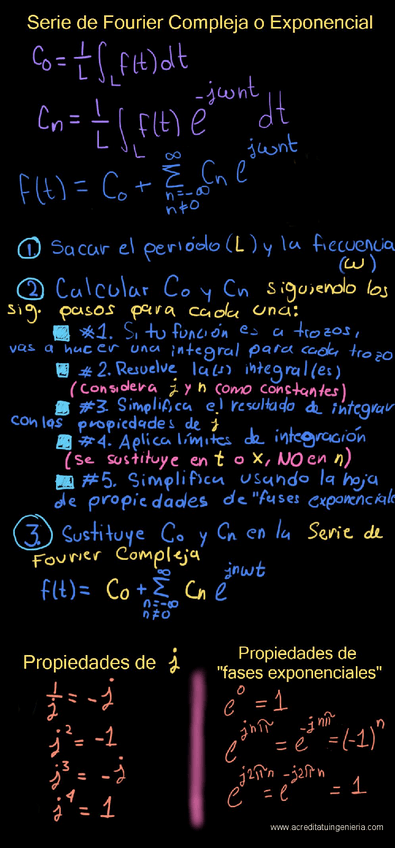 Serie de Fourier Compleja o Exponencial
C₀ = 1/L ∫_L f(t) dt
Cn = 1/L ∫_L f(t) e^(-jωnt) dt
f(t) = C₀ + ∑_(n=-∞, n≠0)^∞ Cn e^(jωnt)
① Sacar el periódo (L) y la frecuencia
(ω)
② Calcular C₀ y Cn siguiendo los
sig. pasos para cada una:
#1. Si tu función es a trozos,
vas a hacer una integral para cada trozo
#2. Resuelve la(s) integral(es)
(considera j y n como constantes)
#3. Simplifica el resultado de integrar
con las propiedades de j
#4. Aplica límites de integración
(se sustituye en t o x, NO en n)
#5. Simplifica usando la hoja
de propiedades de "fases exponenciale
③ Sustituye C₀ y Cn en la Serie de
Fourier Compleja
f(t) = C₀ + ∑_(n=-∞, n≠0)^∞ Cn e^(jnωt)
Propiedades de j
1/j = -j
j² = -1
j³ = -j
j⁴ = 1
Propiedades de
"fases exponenciales"
e^0 = 1
e^(jnπ) = e^(-jnπ) = (-1)^n
e^(j2πn) = e^(-j2πn) = 1
www.acreditatuingenieria.com